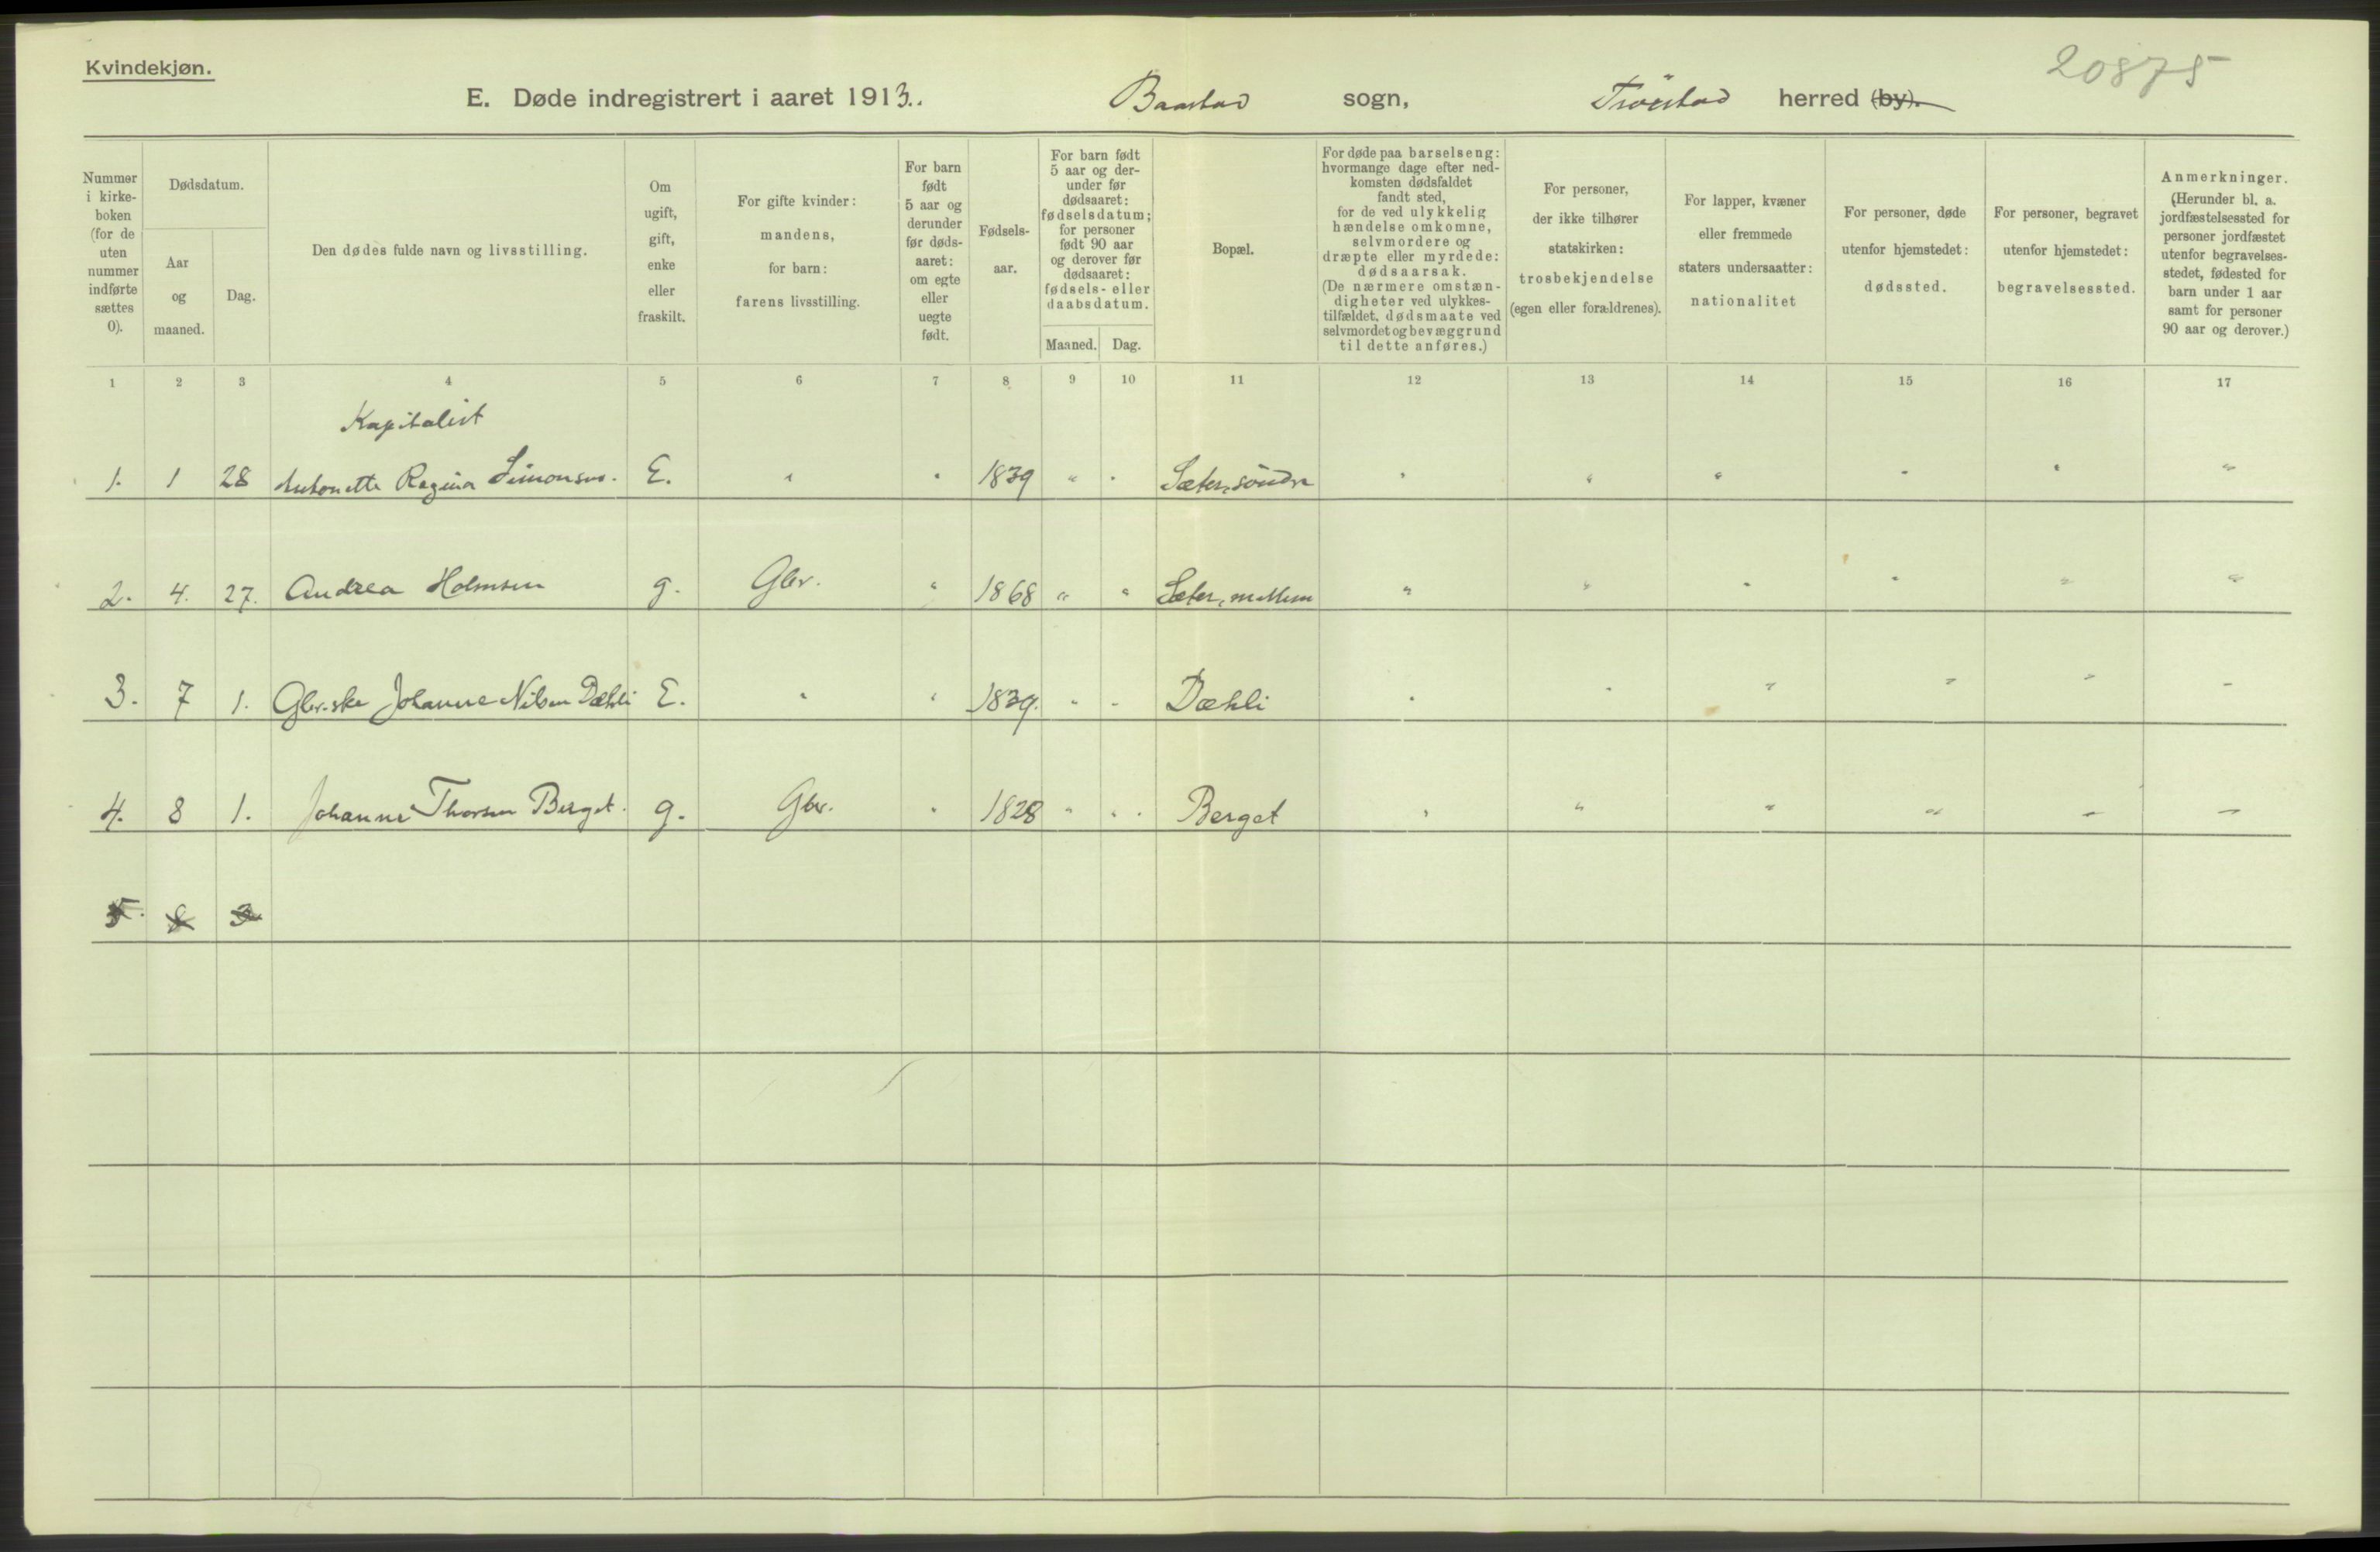 Kvindekjøn.
20875
E. Døde indregistrert i aaret 1913. Baastad sogn, Trøistad herred (by).
Nummer i kirke-boken (for de uten nummer indførte sættes 0).
Dødsdatum.
Aar og maaned.
Dag.
Den dødes fulde navn og livsstilling.
Om ugift, gift, enke eller fraskilt.
For gifte kvinder: mandens, for barn: farens livsstilling.
For barn født 5 aar og derunder før døds-aaret: om egte eller uegte født.
Fødsels-aar.
For barn født 5 aar og der-under før dødsaaret: fødselsdatum; for personer født 90 aar og derover før dødsaaret: fødsels- eller daabsdatum.
Maaned. Dag.
Bopæl.
For døde paa barselseng: hvormange dage efter ned-komsten dødsfaldet fandt sted, for de ved ulykkelig hændelse omkomne, selvmordere og dræpte eller myrdede: dødsaarsak. (De nærmere omstæn-digheter ved ulykkes-tilfældet, dødsmaate ved selvmordet og bevæggrund til dette anføres.)
For personer, der ikke tilhører statskirken: trosbekjendelse (egen eller forældrenes).
For lapper, kvæner eller fremmede staters undersaatter: nationalitet
For personer, døde utenfor hjemstedet: dødssted.
For personer, begravet utenfor hjemstedet: begravelsessted.
Anmerkninger. (Herunder bl. a. jordfæstelsessted for personer jordfæstet utenfor begravelses-stedet, fødested for barn under 1 aar samt for personer 90 aar og derover.)
1 2 3 4 5 6 7 8 9 10 11 12 13 14 15 16 17
Kapitalist
1. 1 28 Antonette Regina Simonsen. E. " " 1839 " " Sæter, søndre " " " " " "
2. 4. 27. Andrea Holmsen g. Gbr. " 1868 " " Sæter, mellem " " " " " "
3. 7 1. Gbr.ske Johanne Nilsen Dæhli E. " " 1839. " " Dæhli " " " " " "
4. 8 1. Johanne Thorsen Berget. g. Gbr. " 1828 " " Berget " " " " - -
5. 8 3